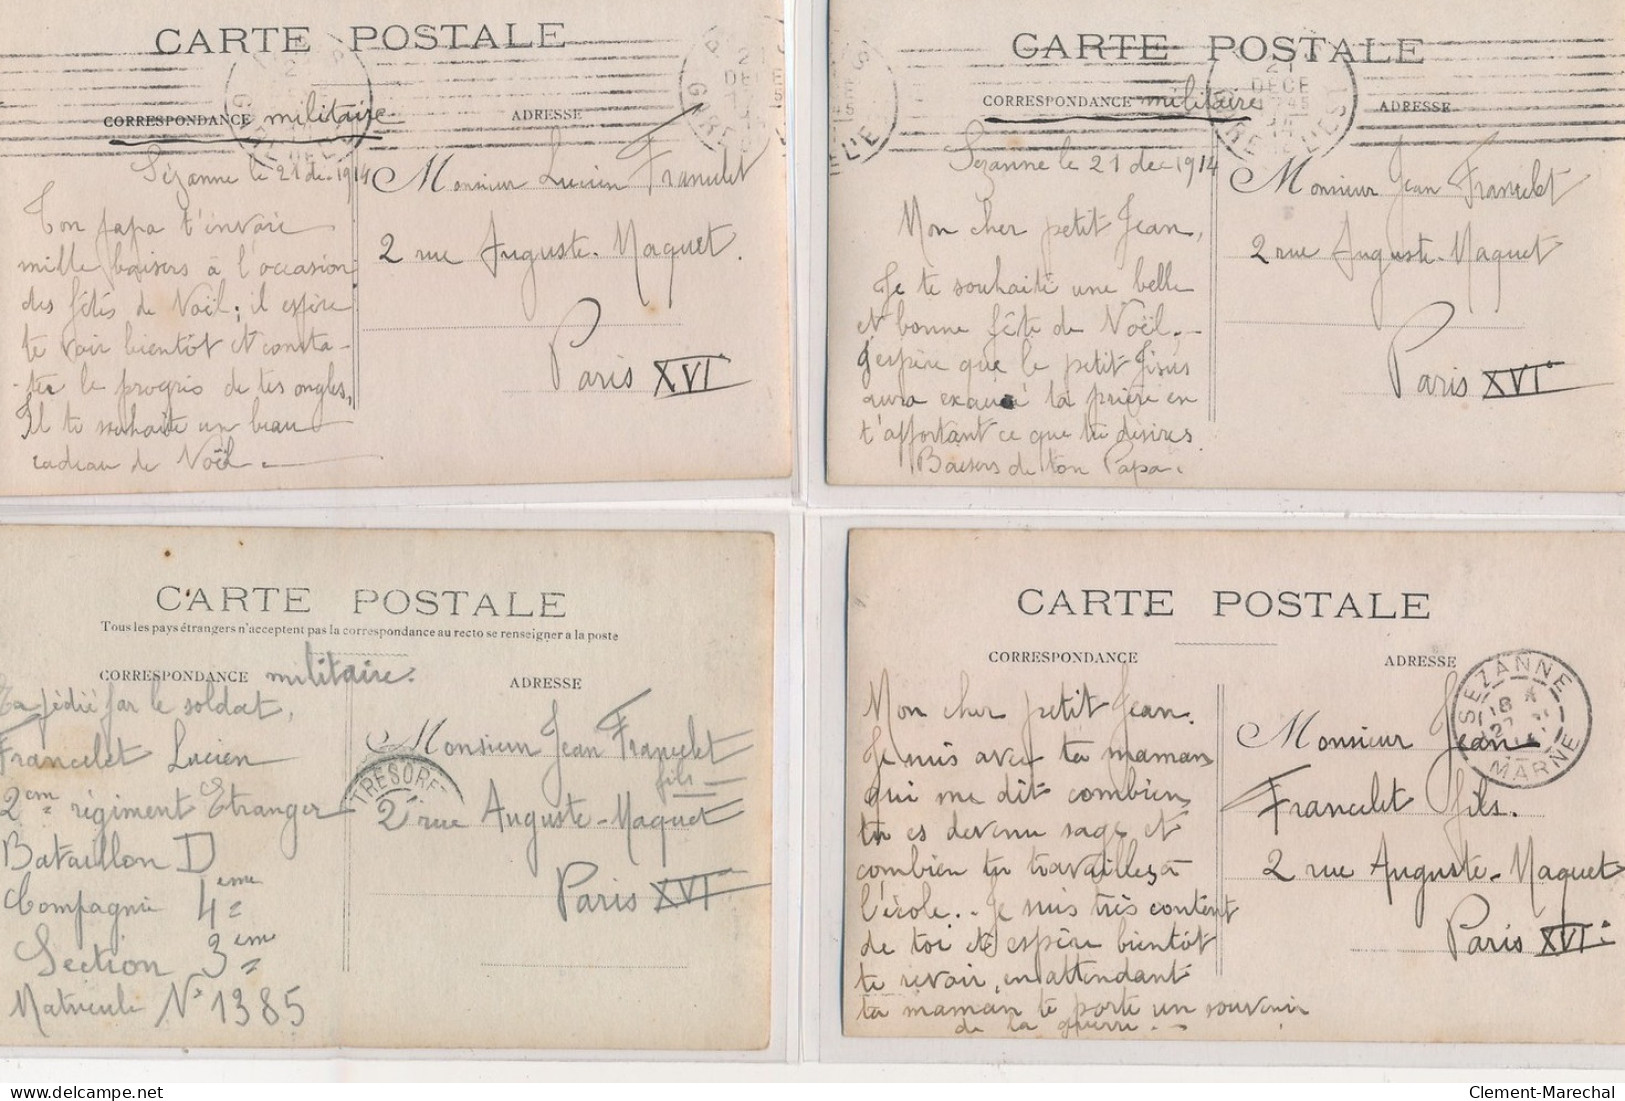 CARTE POSTALE
CORRESPONDANCE militaire
ADRESSE
Sézanne le 21 dec. 1914
Ton papa t'envoie
mille baisers à l'occasion
des fêtes de Noël; il espère
te voir bientôt et consta-
-ter le progrès de tes ongles,
Il te souhaite un beau
cadeau de Noël.
Monsieur Lucien Francelet
2 rue Auguste-Maquet.
Paris XVIe
CARTE POSTALE
CORRESPONDANCE militaire
ADRESSE
21
DECE
Sézanne le 21 dec 1914
Mon cher petit Jean,
Je te souhaite une belle
et bonne fête de Noël.
J'espère que le petit Jésus
aura exaucé ta prière en
t'apportant ce que tu désires
Baisers de ton Papa.
Monsieur Jean Francelet
2 rue Auguste-Maquet
Paris XVIe
CARTE POSTALE
Tous les pays étrangers n'acceptent pas la correspondance au recto se renseigner a la poste
CORRESPONDANCE militaire.
ADRESSE
Expédié par le soldat,
Francelet Lucien
2eme régiment Etranger
Bataillon D
Compagnie 4eme
Section 3eme
Matricule N° 1385
Monsieur Jean Francelet
fils
TRESOR
2 rue Auguste-Maquet
Paris XVIe
CARTE POSTALE
CORRESPONDANCE
ADRESSE
SEZANNE
MARNE
Mon cher petit Jean.
Je suis avec ta maman
qui me dit combien
tu es devenu sage et
combien tu travailles à
l'école.. Je suis très content
de toi et espère bientôt
te revoir, en attendant
ta maman te porte un souvenir
de la guerre.
Monsieur Jean
Francelet fils.
2 rue Auguste-Maquet
Paris XVIe
Clement-Marechal